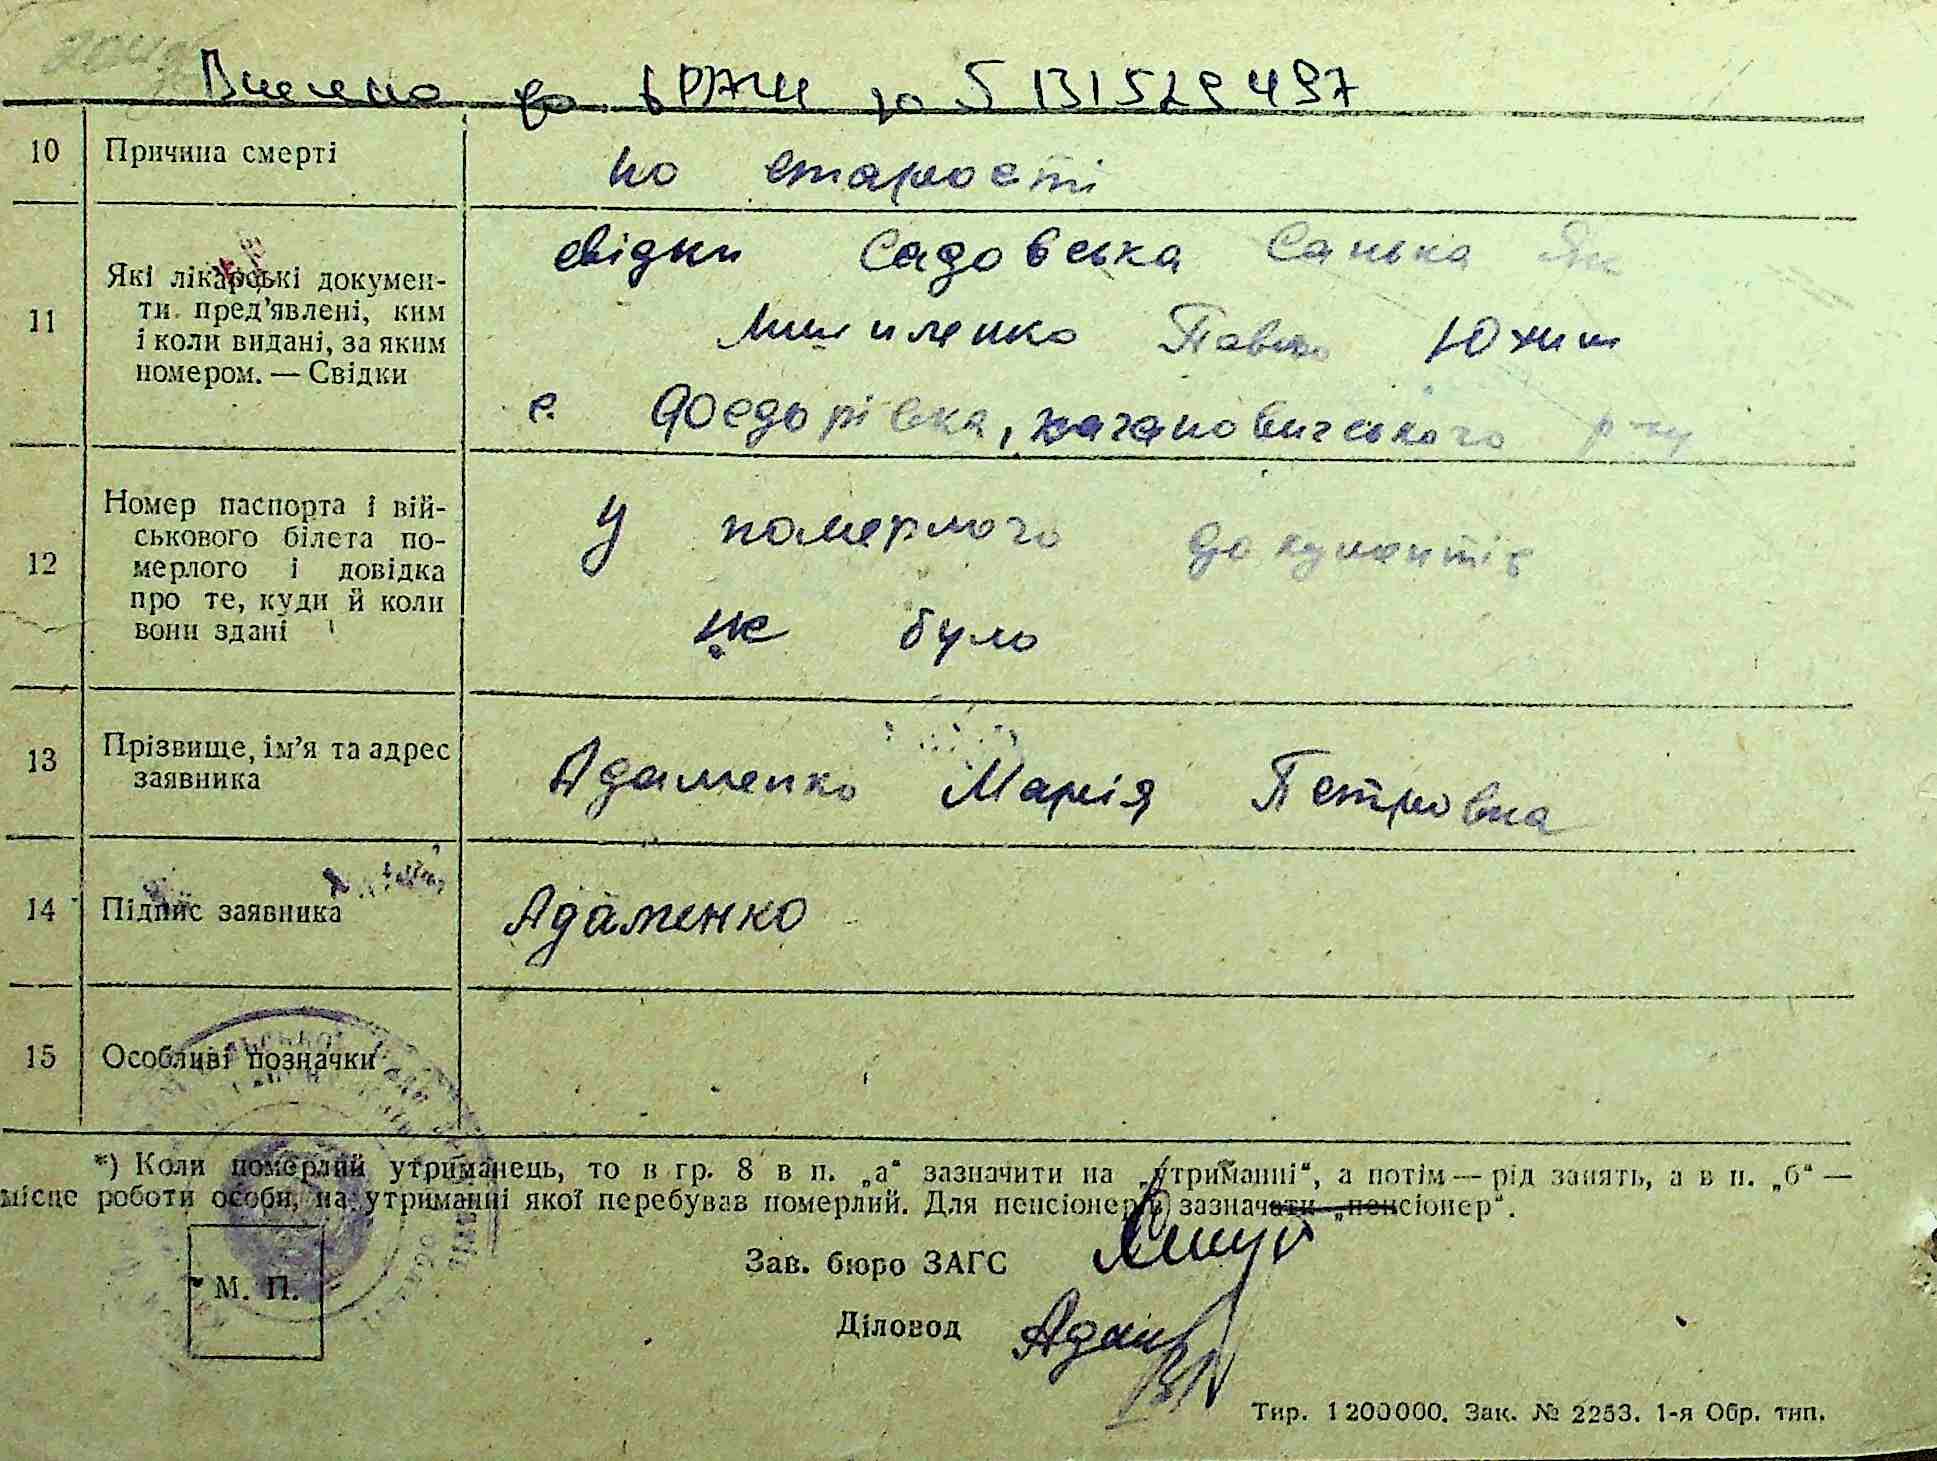 Внесено до ДРАЦС за
10 Причина смерті по старості
11 Які лікарські докумен-
ти пред'явлені, ким
і коли видані, за яким
номером. — Свідки
свідки Садовська Санька Як
Павло Юхим
с. Федорівка, качановичського р-ну
12 Номер паспорта і вій-
ськового білета по-
мерлого і довідка
про те, куди й коли
вони здані
У померлого документів
не було
13 Прізвище, ім'я та адрес
заявника
Адаменко Марія Петровна
14 Підпис заявника Адаменко
15 Особливі позначки
*) Коли померлий утриманець, то в гр. 8 в п. „а“ зазначити на „утриманні“, а потім — рід занять, а в п. „б“ —
місце роботи особи, на утриманні якої перебував померлий. Для пенсіонерів зазначати „пенсіонер“.
М. П.
Зав. бюро ЗАГС
Діловод
Тир. 1200000. Зак. № 2253. 1-я Обр. тип.